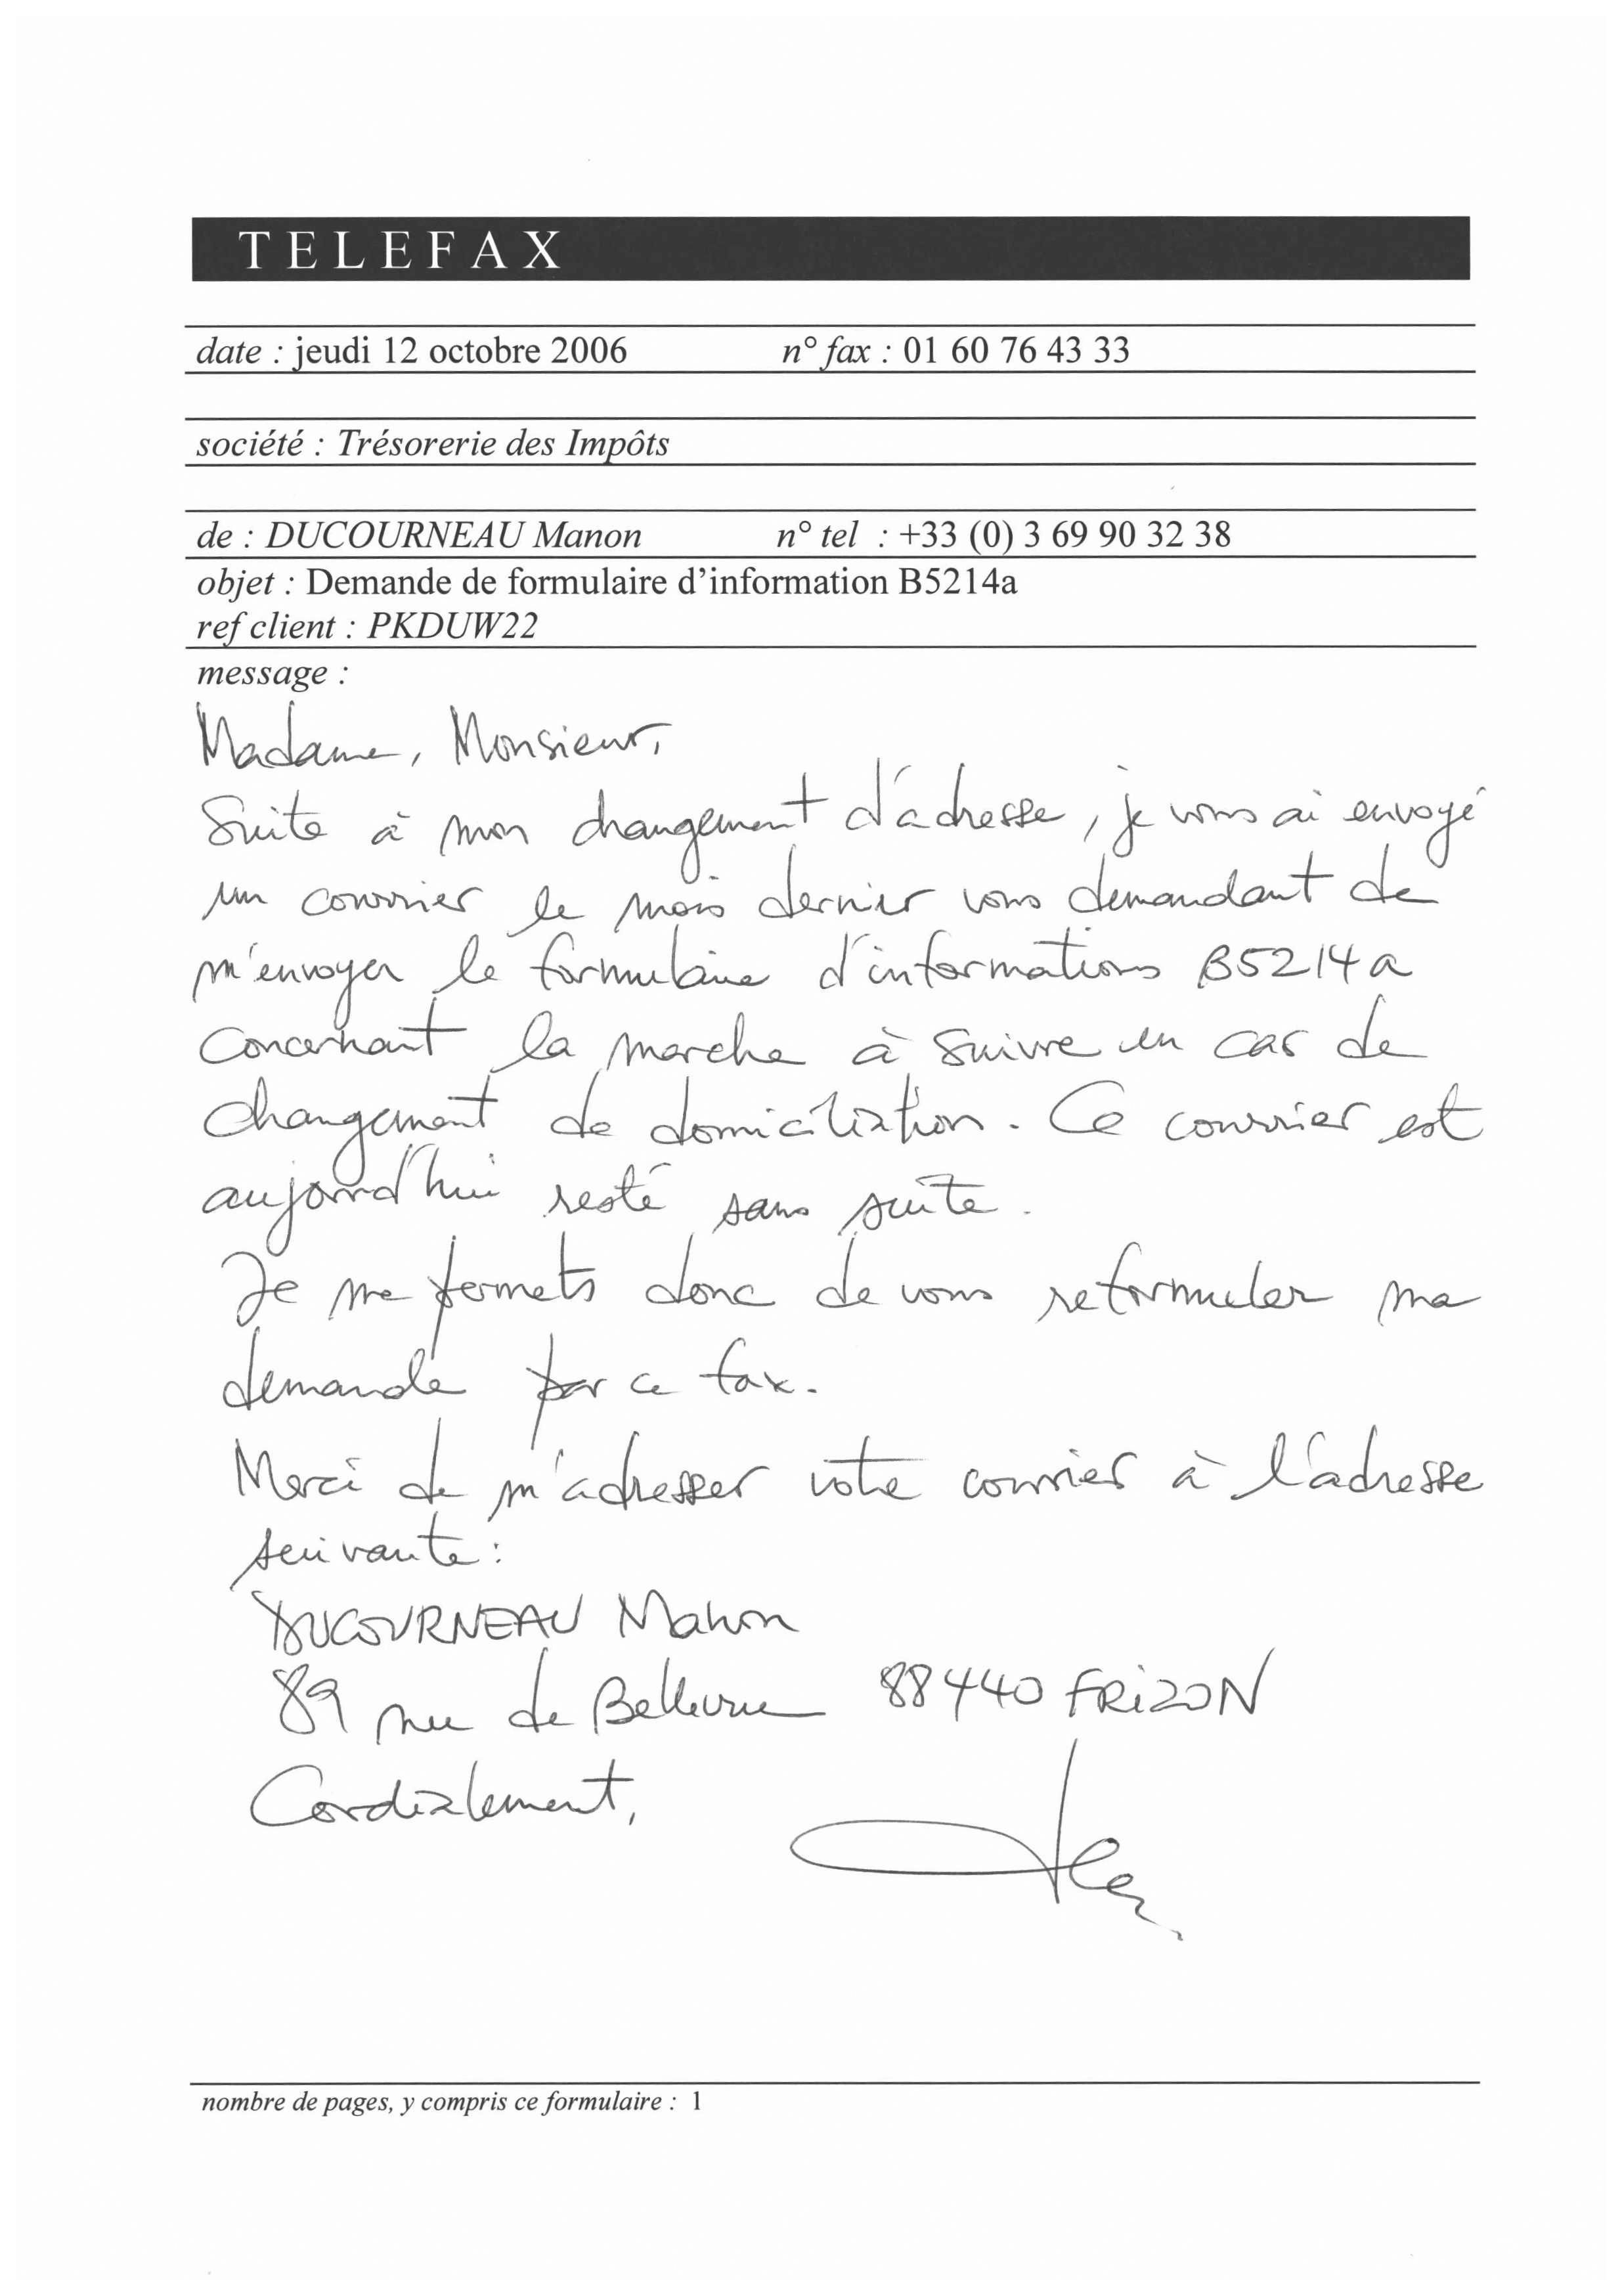 TELEFAX
date : jeudi 12 octobre 2006 n° fax : 01 60 76 43 33
société : Trésorerie des Impôts
de : DUCOURNEAU Manon n° tel : +33 (0) 3 69 90 32 38
objet : Demande de formulaire d'information B5214a
ref client : PKDUW22
message :
Madame, Monsieur,
Suite à mon changement d'adresse, je vous ai envoyé
un courrier le mois dernier vous demandant de
m'envoyer le formulaire d'informations B5214a
concernant la marche à suivre en cas de
changement de domiciliation. Ce courrier est
aujourd'hui resté sans suite.
Je me permets donc de vous reformuler ma
demande par ce fax.
Merci de m'adresser votre courrier à l'adresse
suivante :
DUCOURNEAU Manon
89 rue de Bellevue 88440 FRIZON
Cordialement,
nombre de pages, y compris ce formulaire : 1